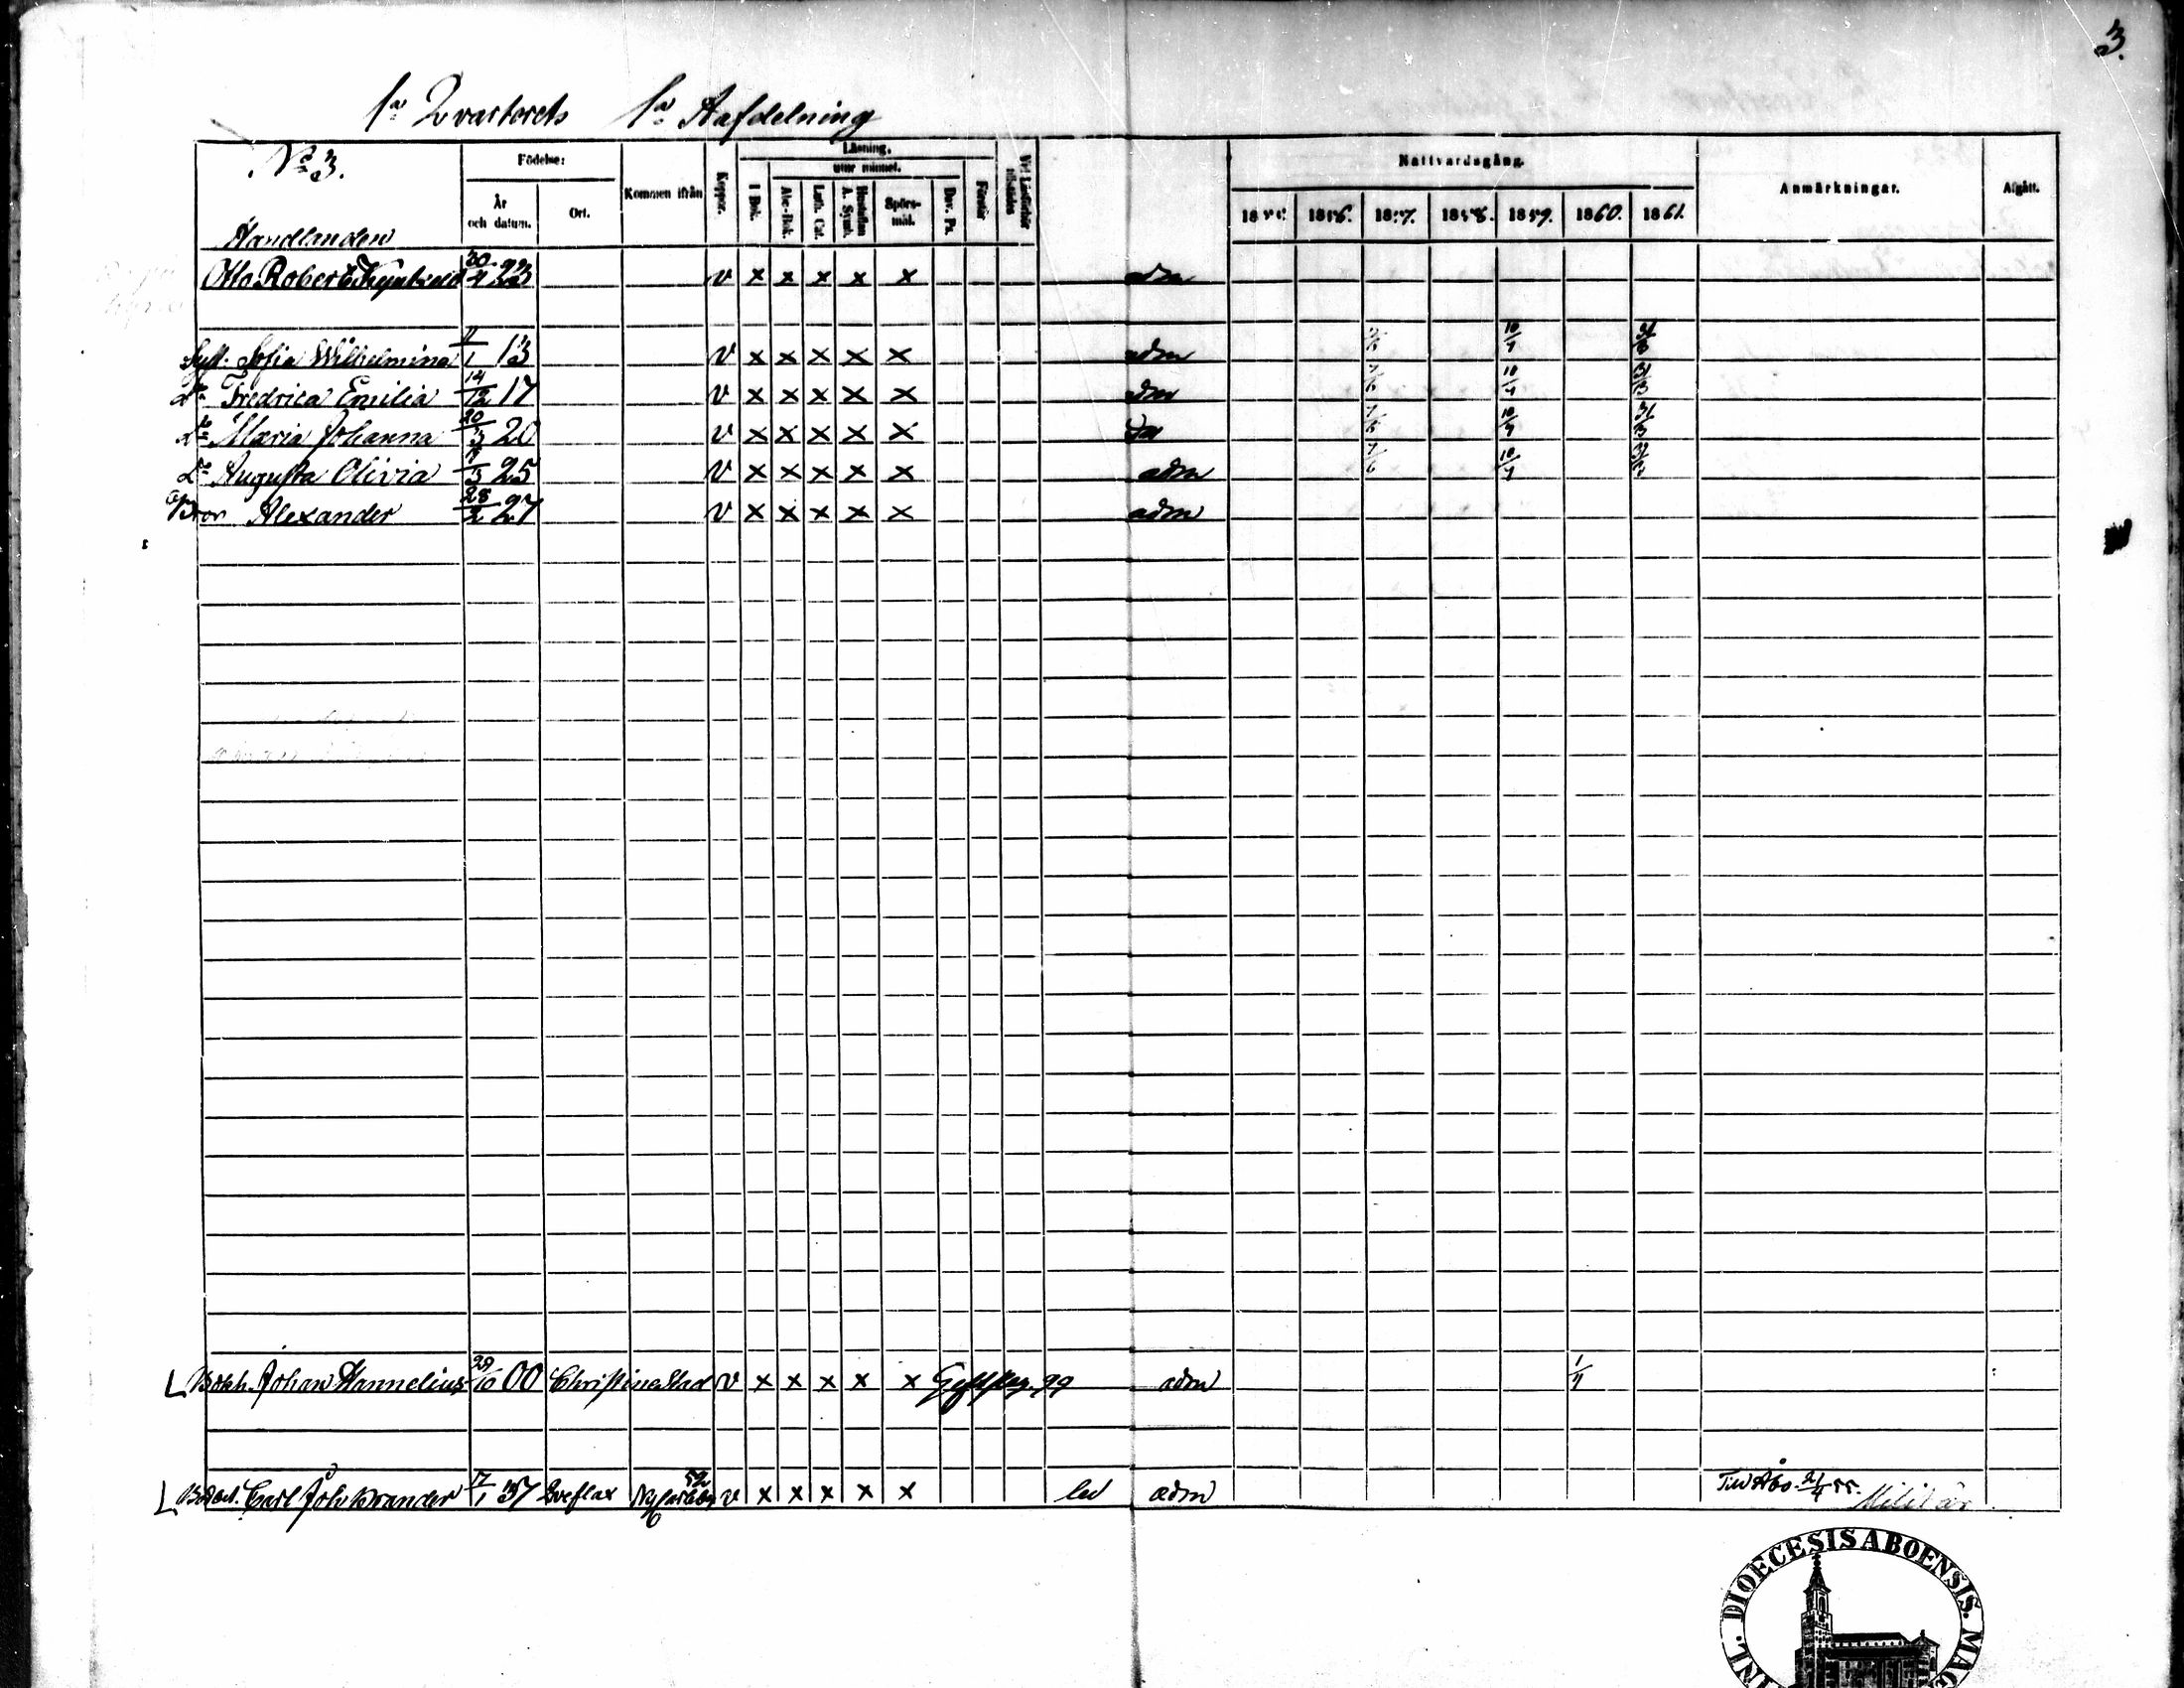 3.
1a Qvarterets 1a Aafdelning
No 3.
Födelse:
År och datum.
Ort.
Kommen ifrån
Koppor.
Läsning.
utur minnet.
I Bok.
Abc-Bok.
Luth. Cat.
Hustaflan A. Symb.
Spörs-mål.
Dav. Ps.
Förstår
Vid Läsförhör tillstädes
Nattvardsgång.
1856. 1857. 1858. 1859. 1860. 1861.
Anmärkningar.
Afgått.
Handlanden
Otto Robert 30/4 23 v x x x x x adm
Syst. Sofia Wilhelmina 11/1 13 v x x x x x adm 7/6 10/4 31/3
Do Fredrica Emilia 14/12 17 v x x x x x adm 7/6 10/4 31/3
Do Maria Johanna 20/3 20 v x x x x x 7/6 10/4 31/3
Do Augusta Olivia 25 v x x x x x adm 7/6 10/4 31/3
Bror Alexander 28/2 27 v x x x x x adm
Bokh. Johan Hannelius 29/10 00 Christinestad v x x x x x 99 adm 1/4
Carl Joh. Brander 17/1 37 Qveflax Nycarleby 52 v x x x x x led adm Till Åbo 21/4 55. Militär
DIOECESIS ABOENSIS. MAG